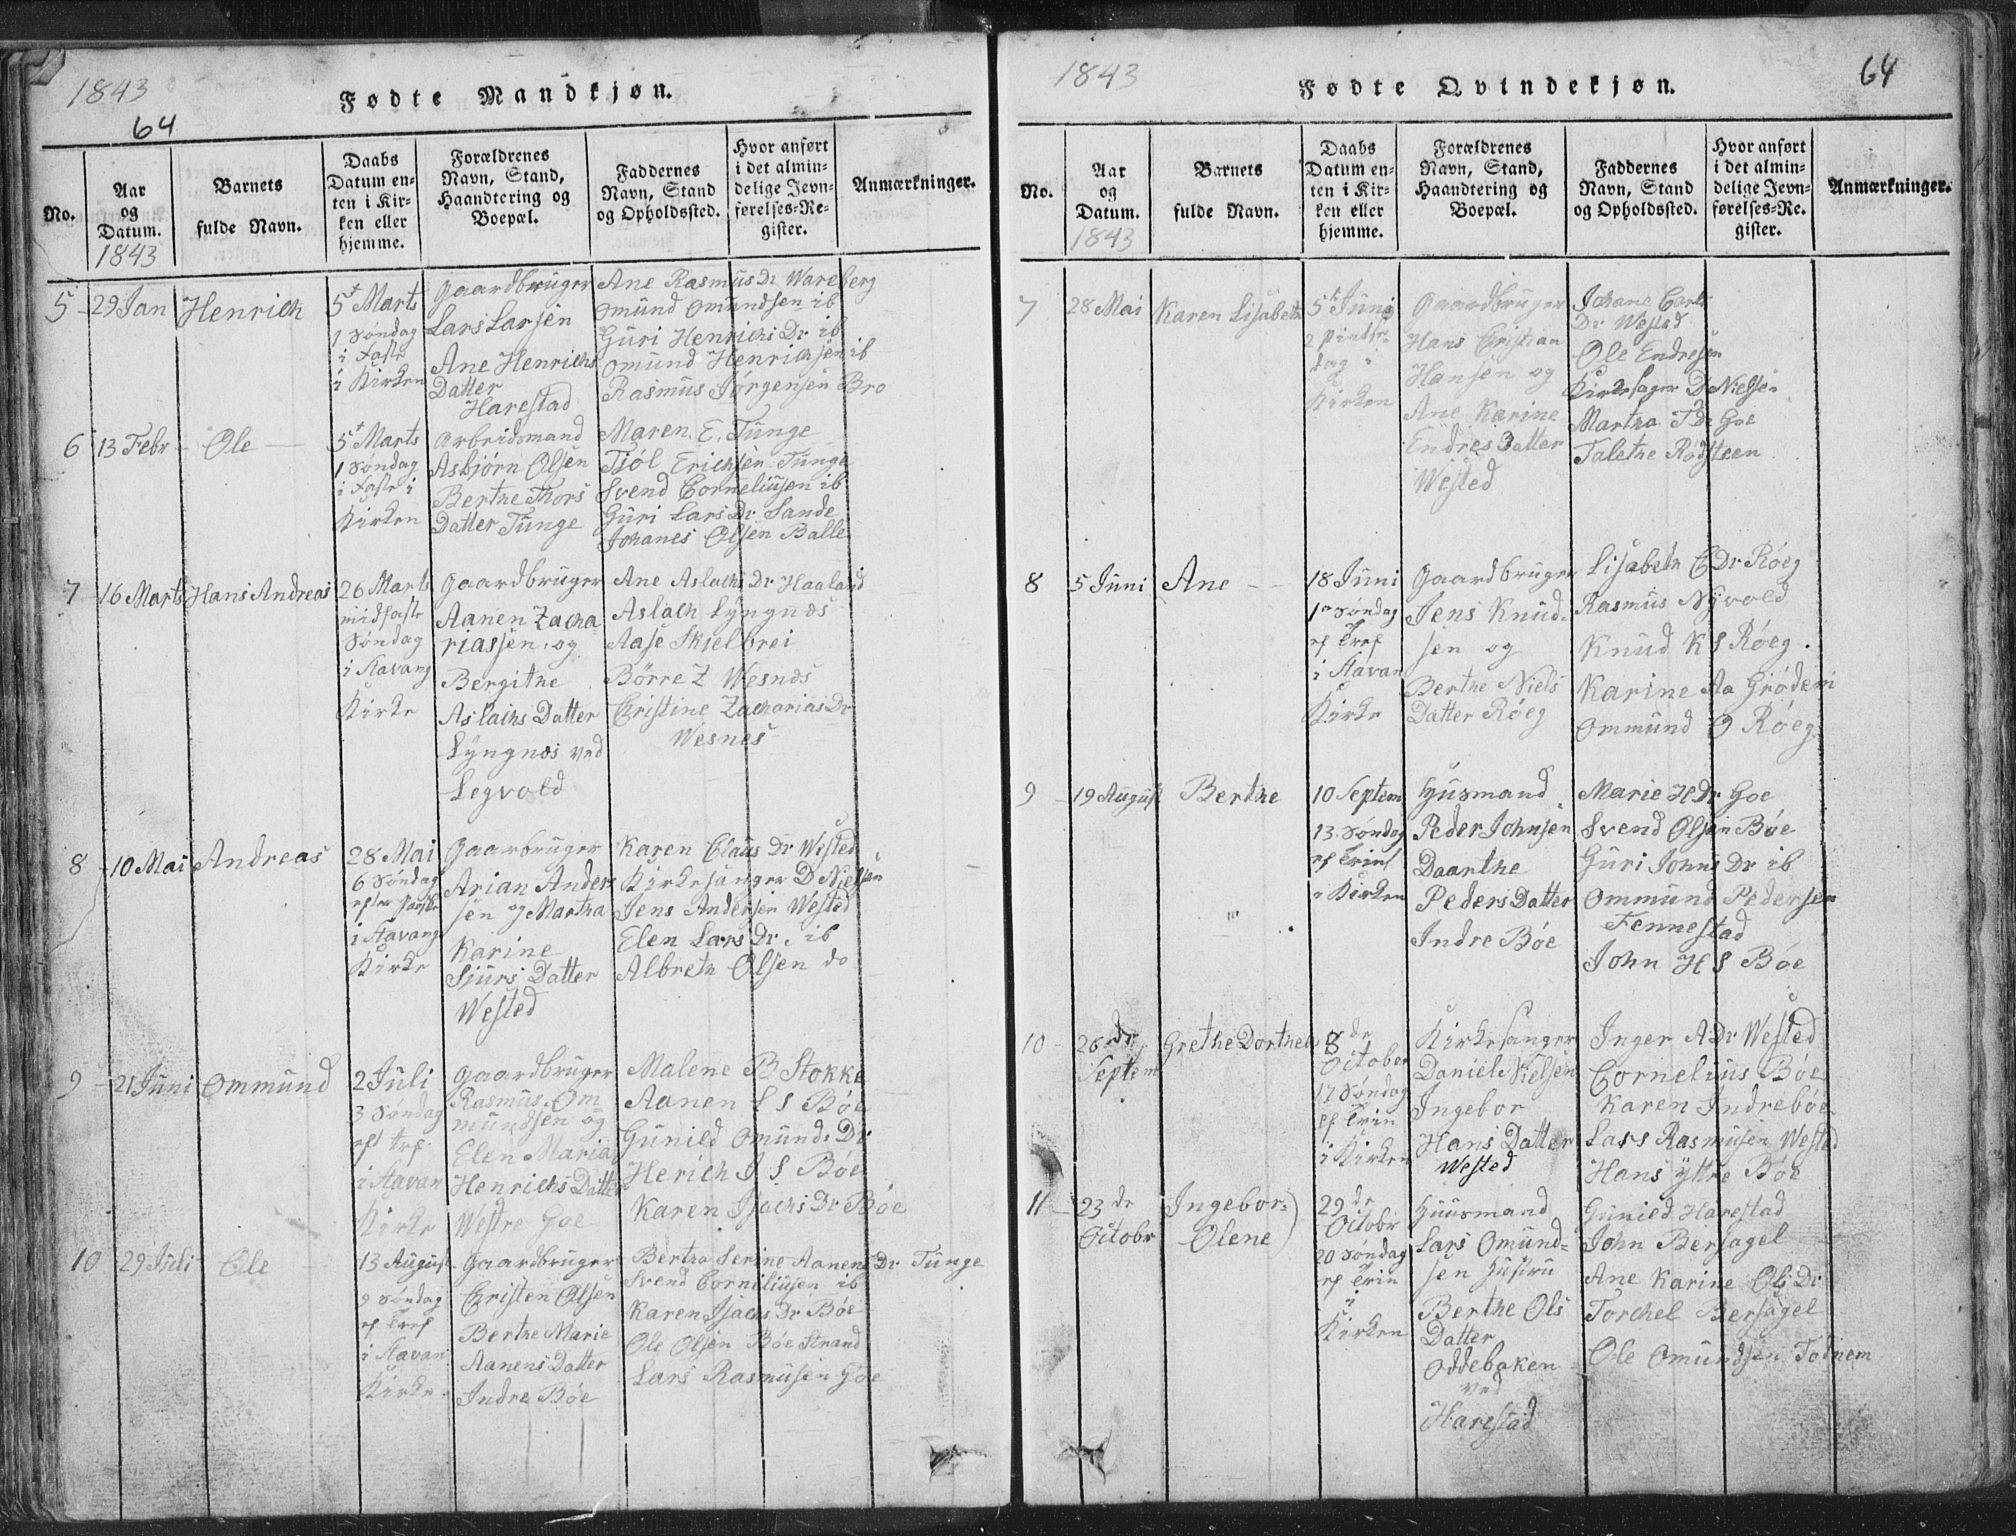 1843
64
Fødte Mandkjøn.
No.
Aar
og
Datum.
1843
Barnets
fulde Navn.
Daabs
Datum en-
ten i Kir-
ken eller
hjemme.
Forældrenes
Navn, Stand,
Haandtering og
Boepæl.
Faddernes
Navn, Stand
og Opholdssted.
Hvor anført
i det almin-
delige Jevn-
førelses-Re-
gister.
Anmærkninger.
5
29 Jan
Henrich
5t Marts
1 Søndag
i Faste
i Kirken
Gaardbruger
Lars Larsen
Ane Henrichs
Datter
Harestad
Ane Rasmus Dr Wareberg
Omund Omundsen ib
Guri Henrichs Dr ib
Omund Henrichsen ib
Rasmus Jørgensen Bro
6
13 Febr
Ole
5t Marts
1 Søndag
i Faste i
Kirken
Arbeidsmand
Asbjørn Olsen
Berthe Thors
Datter Tunge
Maren E. Tunge
Tjøl Erichsen Tunge
Svend Corneliusen ib
Guri Lars Dr Sande
Johanes Olsen Balle
7
16 Marts
Hans Andreas
26 Marts
midfaste
Søndag
i Stavang
Kirke
Gaardbruger
Aanen Zacha-
riassen, og
Bergithe
Aslachs Datter
Lyngnæs ved
Legvold
Ane Aslachs Dr Haaland
Aslach Lyngnæs
Aase Skjelbrei
Børre Z Wesnæs
Christine Zacharias Dr
Wesnes
8
10 Mai
Andreas
28 Mai
6 Søndag
efter Paaske
i Stavang
Kirke
Gaarbruger
Arian Anders
sen og Martha
Karine
Siurs Datter
Wested
Karen Claus Dr Wested
Kirkesanger D Nielsen
Jens Andersen Wested
Elen Lars Dr. ib
Albreth Olsen do
9
21 Juni
Ommund
2 Juli
3 Søndag
eft tref.
i Stavan
Kirke
Gaardbruger
Rasmus Om-
mundsen og
Elen Maria
Henrichs Datter
Westre Goe
Malene B Stokke
Aanen L S Bøe
Gunild Omunds Dr
Herich J S Bøe
Karen Isachs Dr Bøe
10
29 Juli
Ole
13 August
9 Søndag
ef Tref
i Stavan
Kirke
Gaardbruger
Cristen Olsen
Berthe Marie
Aanens Datter
Indre Bøe
Bertha Serine Aanens Dr Tunge
Svend Corneliusen ib
Karen Isachs Dr Bøe
Ole Olsen Bøe Strand
Lars Rasmusen Goe
1843
64
Fødte Qvindekjøn.
No.
Aar
og
Datum.
1843
Barnets
fulde Navn.
Daabs
Datum en-
ten i Kir-
ken eller
hjemme.
Forældrenes
Navn, Stand,
Haandtering og
Boepæl.
Faddernes
Navn, Stand
og Opholdssted.
Hvor anført
i det almin-
delige Jevn-
førelses-Re-
gister.
Anmærkninger.
7
28 Mai
Karen Lisabeth
5t Juni
2 Pintse-
dag i
Kirken
Gaardbruger
Hans Cristian
Hansen og
Ane Karine
Endres Datter
Wested
Johane Carls
Dr Wested
Ole Endresen
Kirkesager D Nielsen
Martha T Dr Goe
Talethe Rødsteen
8
5 Juni
Ane
18 Juni
1 Søndag
ef Tref
i Stavan
Kirke
Gaardbruger
Jens Knud-
sen og
Berthe Niels
Datter Røeg
Lisabeth C Dr Røeg
Rasmus Nyvold
Knud K S Røeg.
Karine Aa Grødem
Ommund O Røeg
9
19 August
Berthe
10 Septem
13 Søndag
ef Trinf
i Kirken
Husmand
Peder Johnsen
Daarthe
Peders Datter
Indre Bøe
Marie H Dr Goe
Svend Olsen Bøe
Guri Johns Dr ib
Ommund Pedersen
Fennestad
John H S Bøe
10
26 de
Septem
Grethe Dorthea
8 de
October
17 Søndag
ef Trin
i Kirken
Kirkesanger
Daniel Nielsen
Ingebor
Hans Datter
Wested
Inger A Dr Wested
Cornelius Bøe
Karen Indrebøe
Lars Rasmusen Wested
Hans yttre Bøe
11
23 de
Octobr
Ingebor-
Olene
29 de
Octobr
20 Søndag
ef Trin
i
Kirken
Huusmand
Lars Omund-
sen Hustru
Berthe Ols
Datter
Oddebaken
ved
Harestad
Gunild Harestad
John Bersagel
Ane Karine Ols Dr
Torchel Bersagel
Ole Omundsen Todnem